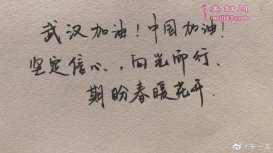 美幻网
moji63.com
武汉加油！中国加油！
坚定信心，向光而行、
期盼春暖花开.